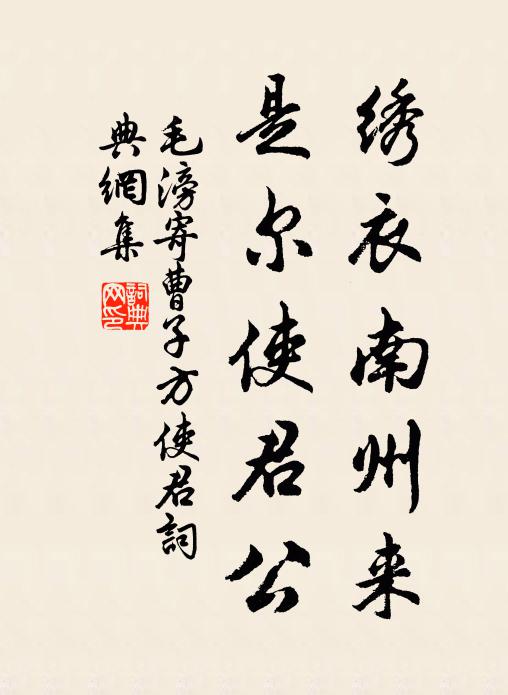 绣衣南州来
是尔使君公
毛滂寄曹子方使君詞
典網集
詞典網印